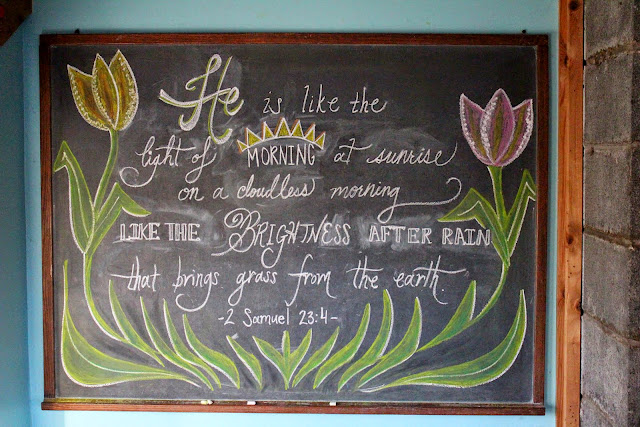 He is like the
light of MORNING at sunrise
on a cloudless morning
LIKE THE BRIGHTNESS AFTER RAIN
that brings grass from the earth.
-2 Samuel 23:4-